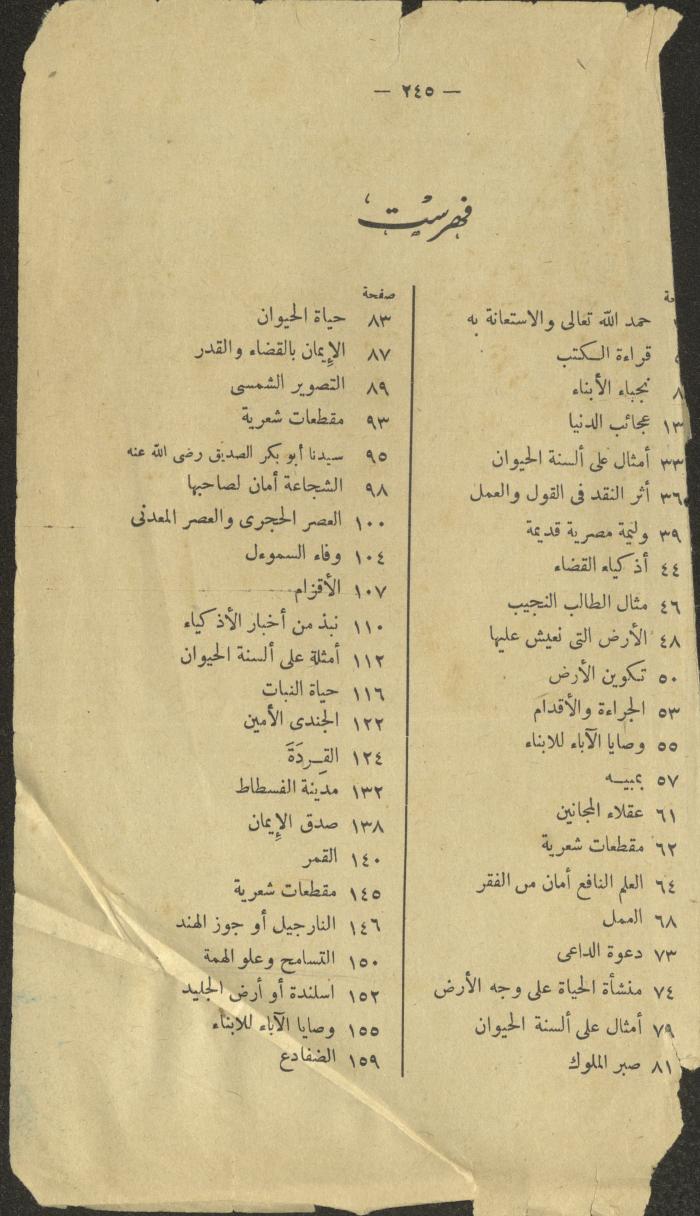 — ٢٤٥ —
فهرست
حمد الله تعالى والاستعانة به
قراءة الكتب
٨ نجباء الأبناء
١٣ عجائب الدنيا
٣٣ أمثال على ألسنة الحيوان
٣٦ أثر النقد فى القول والعمل
٣٩ وليمة مصرية قديمة
٤٤ أذكياء القضاء
٤٦ مثال الطالب النجيب
٤٨ الأرض التى نعيش عليها
٥٠ تكوين الأرض
٥٣ الجراءة والأقدام
٥٥ وصايا الآباء للابناء
٥٧ بمبيه
٦١ عقلاء المجانين
٦٢ مقطعات شعرية
٦٤ العلم النافع أمان من الفقر
٦٨ الممل
٧٣ دعوة الداعى
٧٤ منشأة الحياة على وجه الأرض
٧٩ أمثال على ألسنة الحيوان
٨١ صبر الملوك
صفحة
٨٣ حياة الحيوان
٨٧ الإيمان بالقضاء والقدر
٨٩ التصوير الشمسى
٩٣ مقطعات شعرية
٩٥ سيدنا أبو بكر الصديق رضى الله عنه
٩٨ الشجاعة أمان لصاحبها
١٠٠ العصر الحجرى والعصر المعدنى
١٠٤ وفاء السموءل
١٠٧ الأقزام
١١٠ نبذ من أخبار الأذكياء
١١٢ أمثلة على ألسنة الحيوان
١١٦ حياة النبات
١٢٢ الجندى الأمين
١٢٤ القردة
١٣٢ مدينة الفسطاط
١٣٨ صدق الإيمان
١٤٠ القمر
١٤٥ مقطعات شعرية
١٤٦ النارجيل أو جوز الهند
١٥٠ التسامح وعلو الهمة
١٥٢ اسلندة أو أرض الجليد
١٥٥ وصايا الآباء للابناء
١٥٩ الضفادع